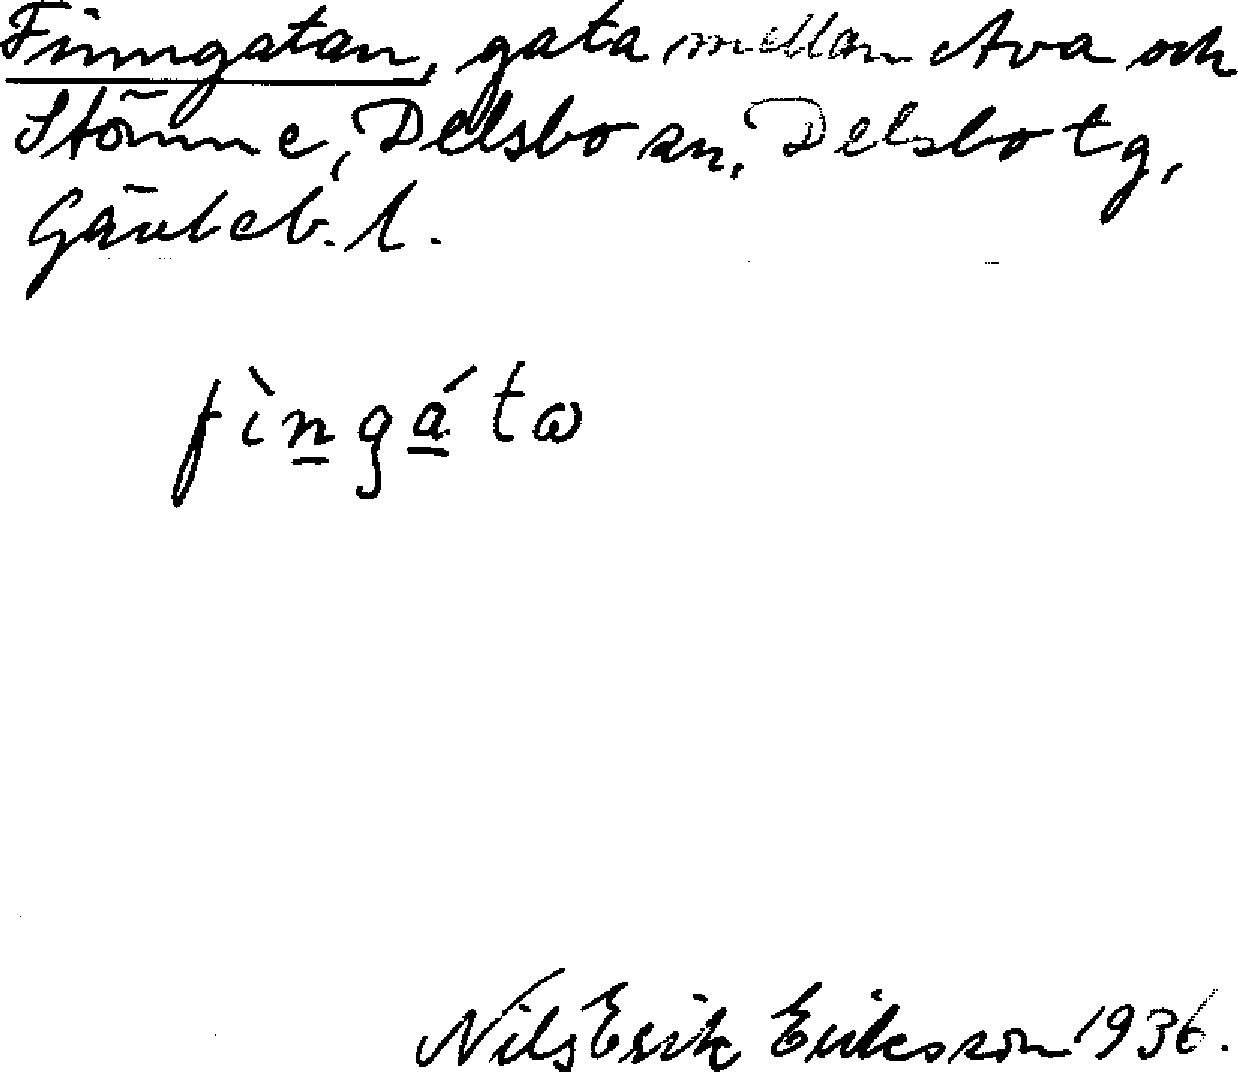 Finngatan, gata mellan Ava och
Stömne, Delsbo sn, Delsbo tg,
Gävleb. l.
fìngáta
Nils Erik Eriksson 1936.